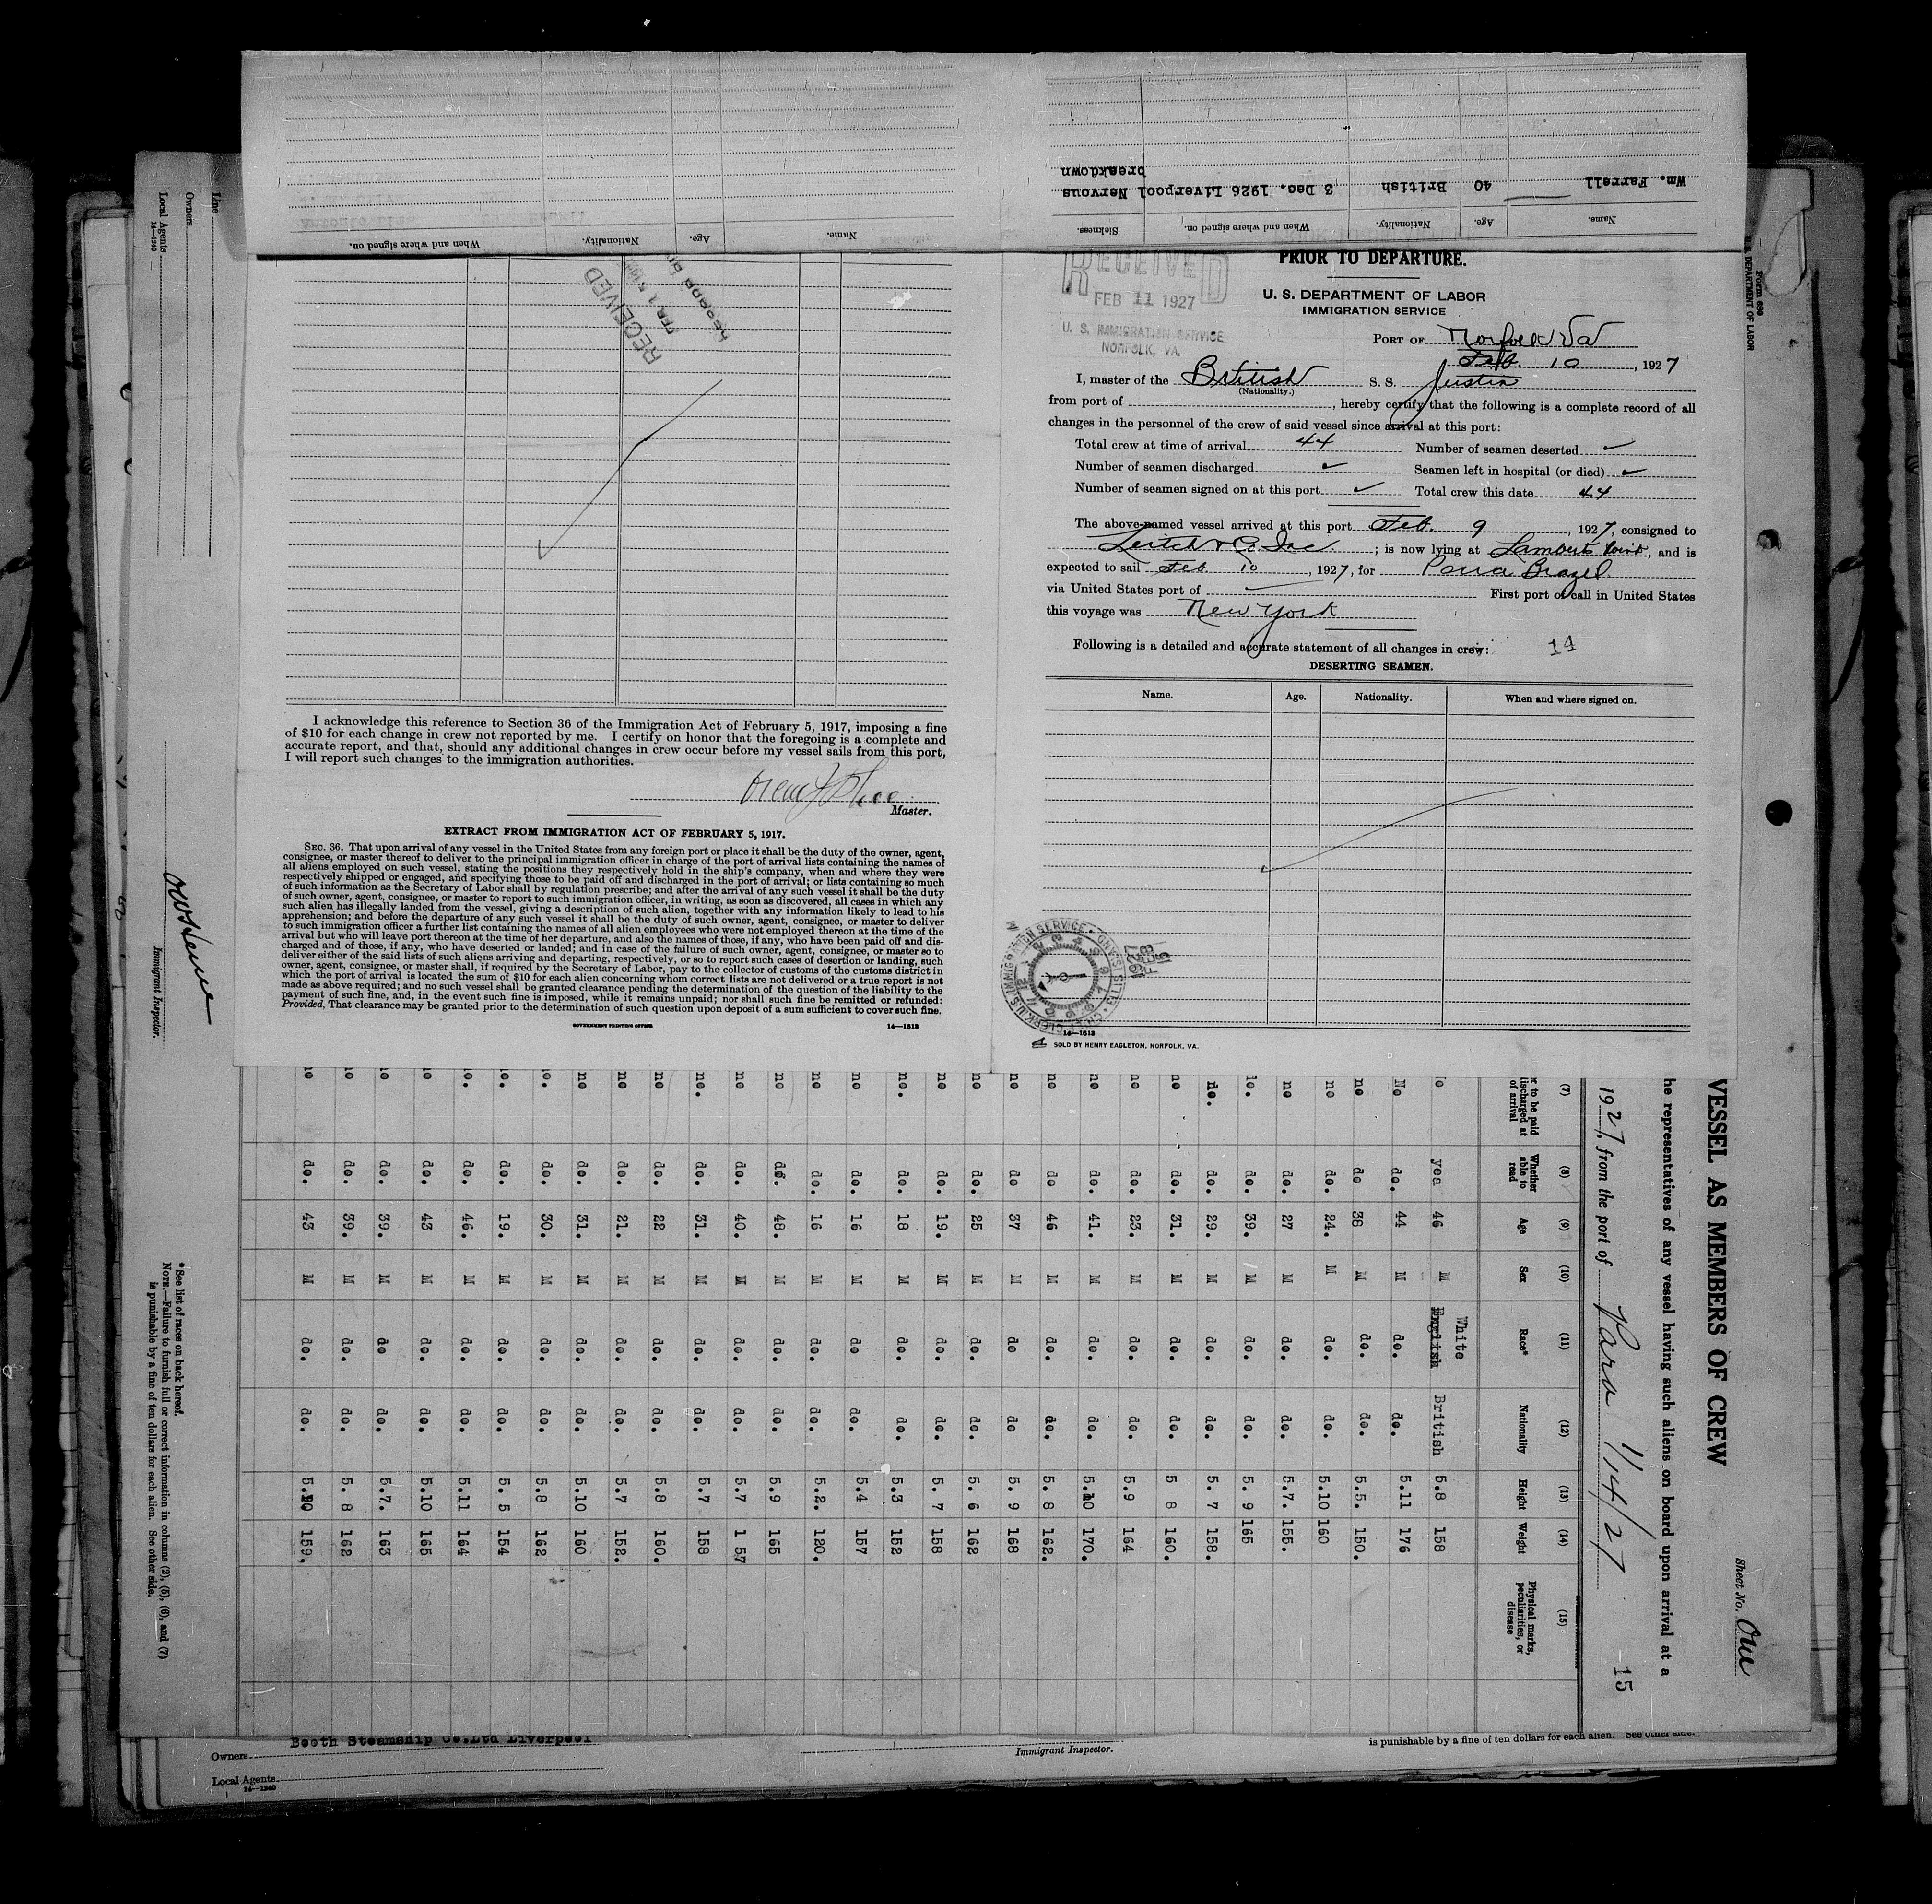 Wm. Farrell 40 British 3 Dec. 1926 Liverpool Nervous
breakdown
Name. Age. Nationality. When and where signed on. Sickness.
Name. Age. Nationality. When and where signed on.
PRIOR TO DEPARTURE.
RECEIVED
FEB 11 1927
U. S. IMMIGRATION SERVICE
NORFOLK, VA.
U. S. DEPARTMENT OF LABOR
IMMIGRATION SERVICE
PORT OF Norfolk Va
Feb. 10, 1927
I, master of the British S. S. Justin
(Nationality.)
from port of , hereby certify that the following is a complete record of all
changes in the personnel of the crew of said vessel since arrival at this port:
Total crew at time of arrival 44 Number of seamen deserted ✓
Number of seamen discharged ✓ Seamen left in hospital (or died) ✓
Number of seamen signed on at this port ✓ Total crew this date 44
The above-named vessel arrived at this port Feb. 9, 1927, consigned to
Leitch & Co. Inc. ; is now lying at Lamberts Point, and is
expected to sail Feb 10, 1927, for Para Brazil
via United States port of First port of call in United States
this voyage was New York
Following is a detailed and accurate statement of all changes in crew: 14
DESERTING SEAMEN.
Name. Age. Nationality. When and where signed on.
14—1613
SOLD BY HENRY EAGLETON, NORFOLK, VA.
1927
FEB
15
RECEIVED
I acknowledge this reference to Section 36 of the Immigration Act of February 5, 1917, imposing a fine
of $10 for each change in crew not reported by me. I certify on honor that the foregoing is a complete and
accurate report, and that, should any additional changes in crew occur before my vessel sails from this port,
I will report such changes to the immigration authorities.
Master.
EXTRACT FROM IMMIGRATION ACT OF FEBRUARY 5, 1917.
SEC. 36. That upon arrival of any vessel in the United States from any foreign port or place it shall be the duty of the owner, agent,
consignee, or master thereof to deliver to the principal immigration officer in charge of the port of arrival lists containing the names of
all aliens employed on such vessel, stating the positions they respectively hold in the ship's company, when and where they were
respectively shipped or engaged, and specifying those to be paid off and discharged in the port of arrival; or lists containing so much
of such information as the Secretary of Labor shall by regulation prescribe; and after the arrival of any such vessel it shall be the duty
of such owner, agent, consignee, or master to report to such immigration officer, in writing, as soon as discovered, all cases in which any
such alien has illegally landed from the vessel, giving a description of such alien, together with any information likely to lead to his
apprehension; and before the departure of any such vessel it shall be the duty of such owner, agent, consignee, or master to deliver
to such immigration officer a further list containing the names of all alien employees who were not employed thereon at the time of the
arrival but who will leave port thereon at the time of her departure, and also the names of those, if any, who have been paid off and dis-
charged and of those, if any, who have deserted or landed; and in case of the failure of such owner, agent, consignee, or master so to
deliver either of the said lists of such aliens arriving and departing, respectively, or so to report such cases of desertion or landing, such
owner, agent, consignee, or master shall, if required by the Secretary of Labor, pay to the collector of customs of the customs district in
which the port of arrival is located the sum of $10 for each alien concerning whom correct lists are not delivered or a true report is not
made as above required; and no such vessel shall be granted clearance pending the determination of the question of the liability to the
payment of such fine, and, in the event such fine is imposed, while it remains unpaid; nor shall such fine be remitted or refunded:
Provided, That clearance may be granted prior to the determination of such question upon deposit of a sum sufficient to cover such fine.
GOVERNMENT PRINTING OFFICE 14—1613
Form 680
U. S. DEPARTMENT OF LABOR
Sheet No. One
VESSEL AS MEMBERS OF CREW
he representatives of any vessel having such aliens on board upon arrival at a
1927, from the port of Para 1/14/27
15
(7) (8) (9) (10) (11) (12) (13) (14) (15)
r to be paid
discharged at
of arrival
Whether
able to
read
Age Sex Race* Nationality Height Weight
Physical marks,
peculiarities, or
disease
White
yea 46 M English British 5.8 158
No do. 44 M do. do. 5.11 176
no do 38 M do. do. 5.5. 150.
no do. 24. M do. do. 5.10 160
no do. 27 M do. do. 5.7. 155.
do. 39. M do. do. 5. 9 165
do. do. 29. M do. do. 5. 7 158.
no do. 31. M do. do. 5 8 160.
no do. 23. M do. do. 5.9 164
no do. 41. M do. do. 5.10 170.
no do 46 M do. do. 5. 8 162.
no do 37 M do do 5. 9 168
no do. 25 M do. do. 5. 6 162
no do. 19. M do. do. 5. 7 158
no. do. 18 M do. do. 5.3 152
no do. 16 M do do. 5.4 157
no do. 16 M do. do. 5.2. 120.
no do. 48. M do. do. 5.9 165
no do. 40. M do. do. 5.7 1 57
no. do. 31. M do. do. 5.7 158
no do. 22 M do. do. 5.8 160.
no do. 21. M do. do. 5.7 152.
no do. 31. M do. do. 5.10 160
do. 30. M do. do. 5.8 162
do. 19. M do. do. 5. 5 154
do. 46. M do. do. 5.11 164
no do. 43 M do. do. 5.10 165
do. 39. M do do. 5.7. 163
do. 39. M do. do. 5. 8 162
do. 43 M do. do. 5.10 159.
Line
Owners
Local Agents
14—1240
Immigrant Inspector.
*See list of races on back hereof.
NOTE.—Failure to furnish full or correct information in columns (2), (5), (6), and (7)
is punishable by a fine of ten dollars for each alien. See other side.
Owners Booth Steamship Co.Ltd Liverpool
Local Agents
14—1240
Immigrant Inspector.
is punishable by a fine of ten dollars for each alien. See other side.